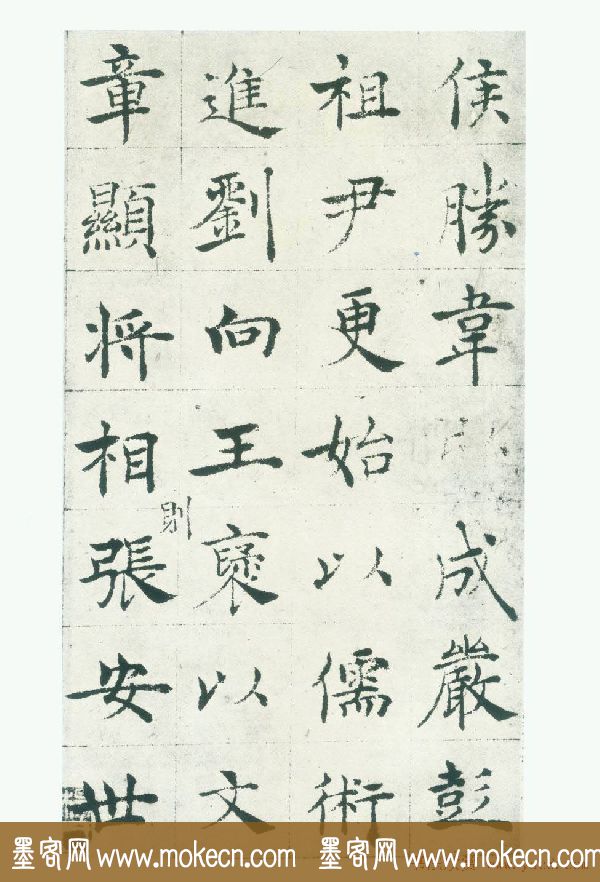 侯勝韋成嚴彭
祖尹更始以儒術
進劉向王褒以文
則
章顯將相張安世
墨客网 www.mokecn.com 墨客网 www.mokecn.com 墨客网 www.mokecn.com